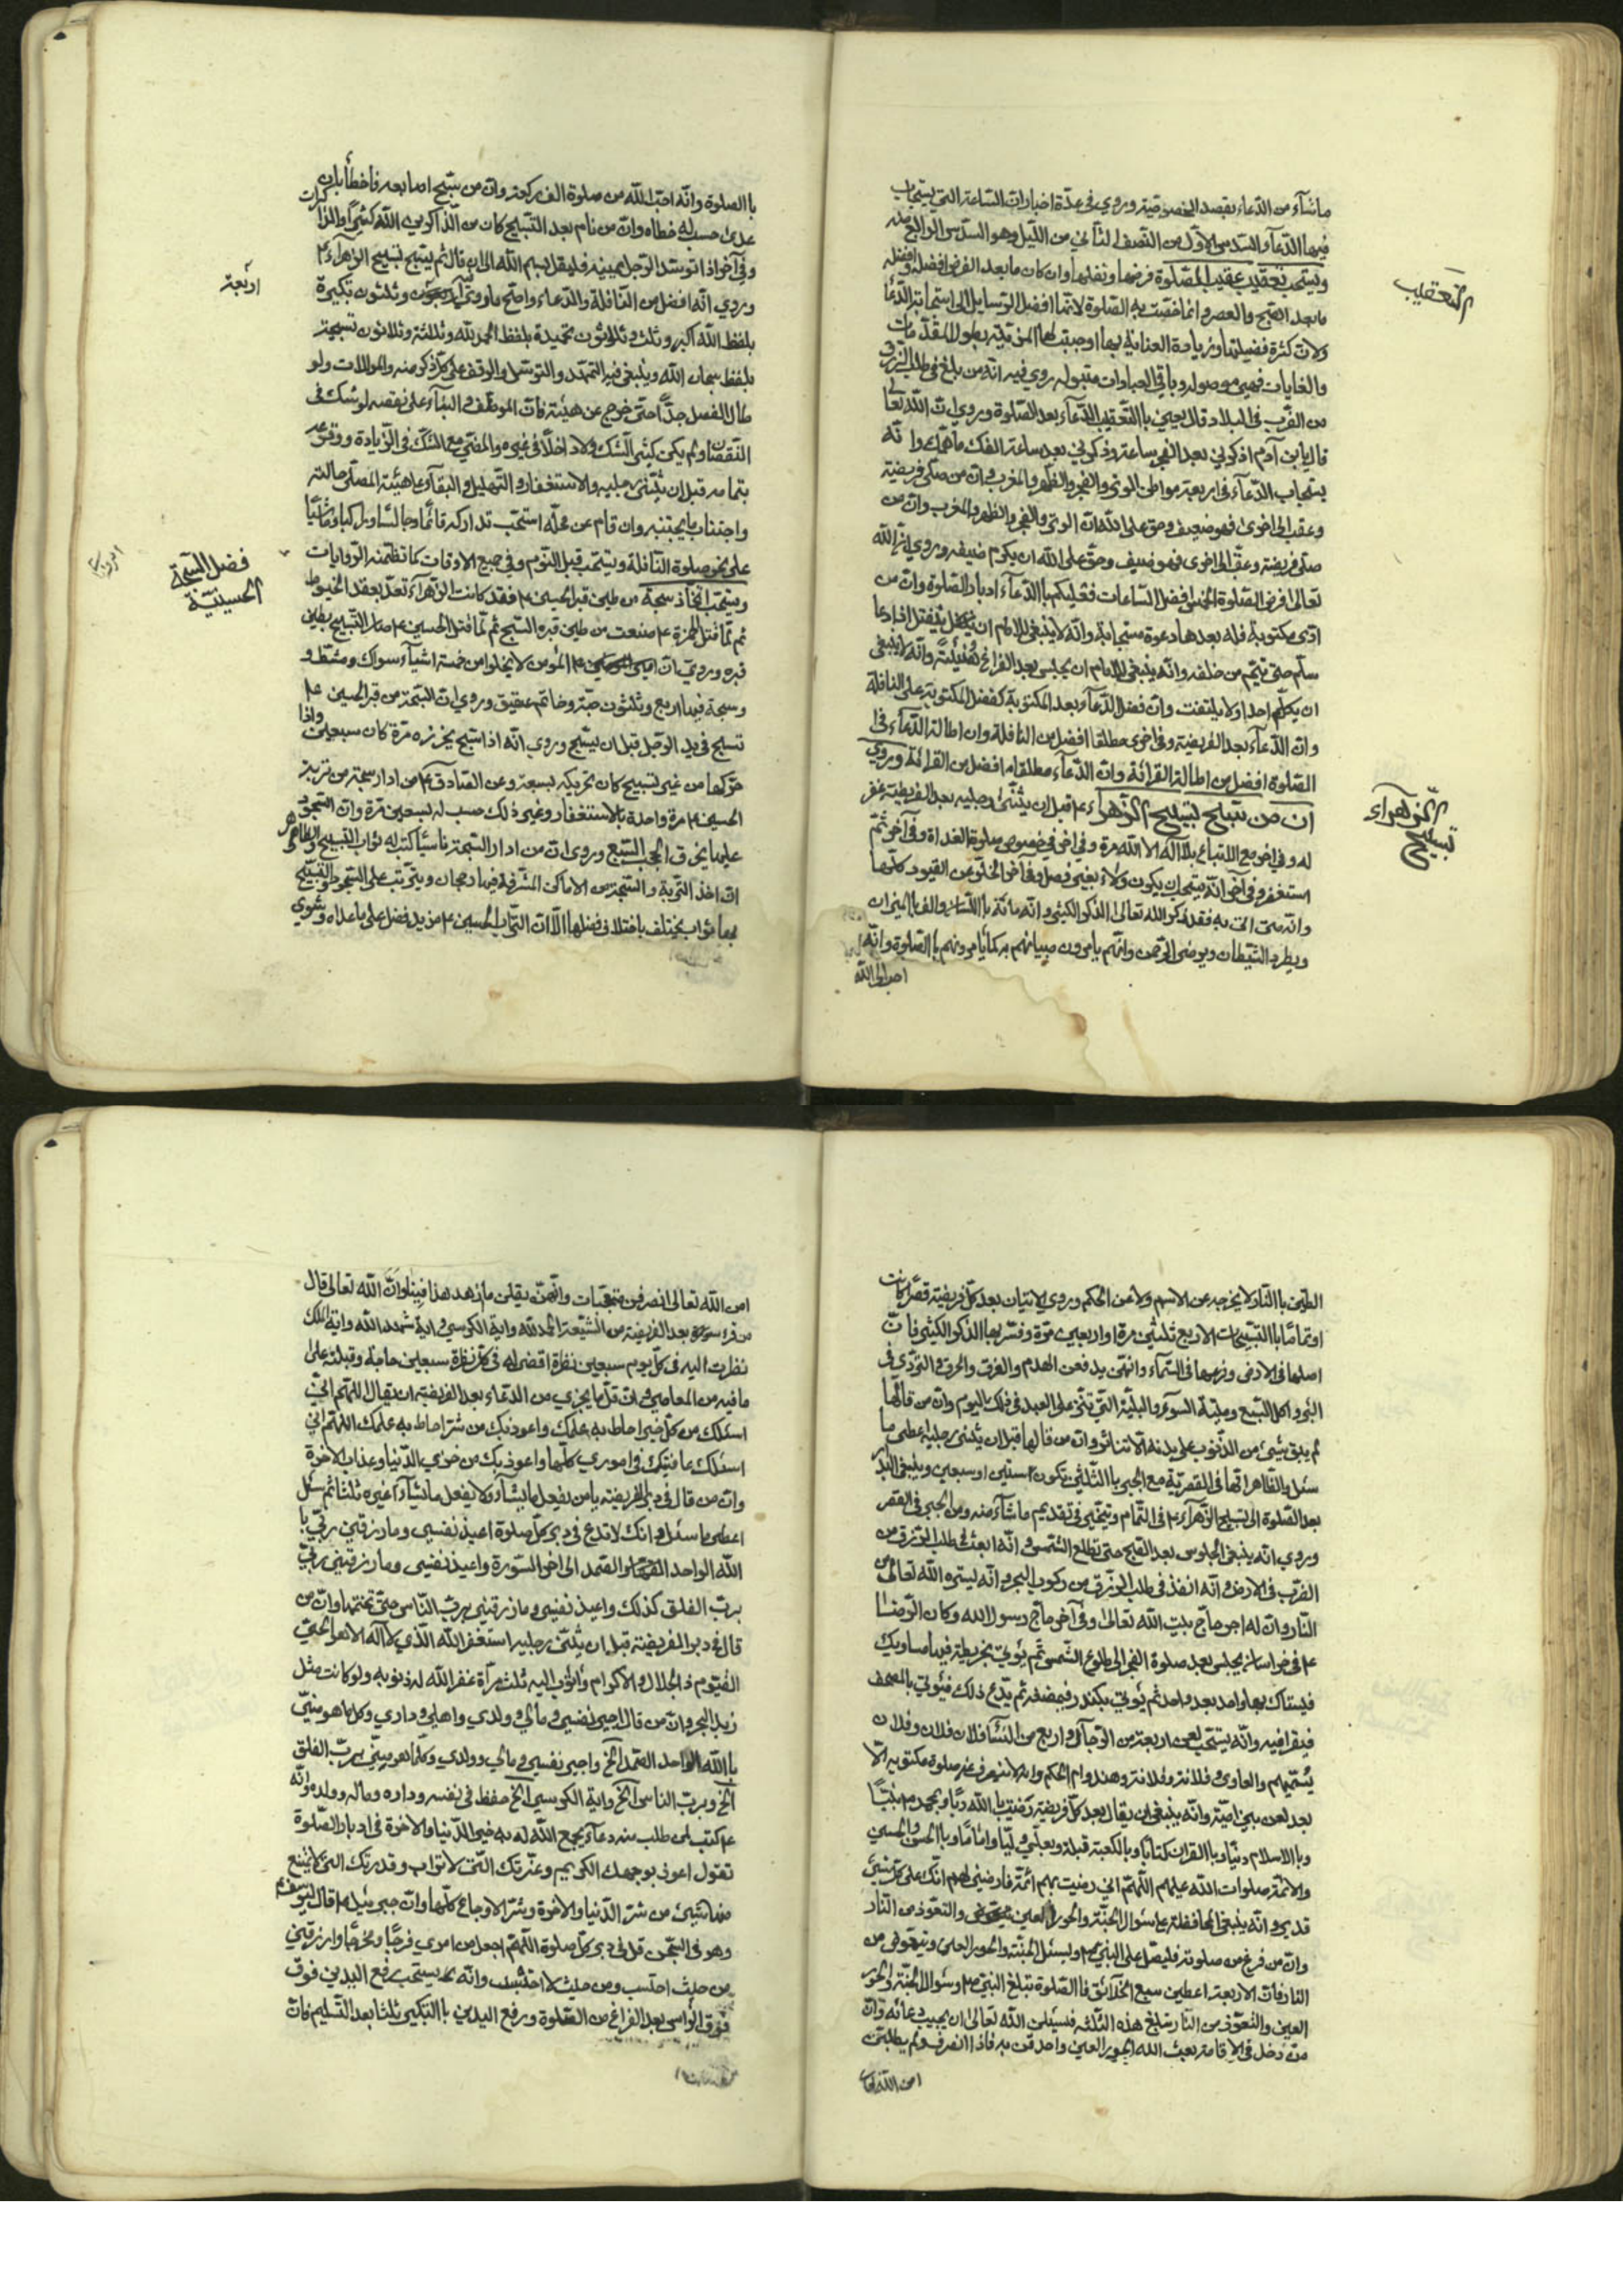 ما شآء من الدّعاء بقصد الخصوصيّة وروي في عدّة اخبار انّ السّاعة التي يستجاب
فيها الدّعآء السّدس الاوّل من النّصف الثّاني من اللّيل وهو السّدس الرابع منه
ويستحبّ تعقيب عقيب الصّلوة فرضها ونفلها وان كان ما بعد الفرض افضل وافضله
ما بعد الصّبح والعصر وانّما خصّت به الصّلوة لانّها افضل الوسايل الى استجابة الدّعا
ولانّ كثرة فضيلتها وزيادة العناية بها اوجبت لها المزيّة بطول المقدّمات
والغايات فهي موصولة وباقي العبادات مقبولة روي فيه انّه من بلغ في طلب الرّزق
من الضّرب في البلاد قال يعني باالتّعقيب الدّعآء بعد الصّلوة وروي انّ اللّه تعالى
قال يابن آدم اذكرني بعد الفجر ساعة وذكرني بعد ساعة اكفك ما اهمّك وانّه
يستجاب الدّعآء في اربعة مواطن الوتر والفجر والظّهر والمغرب وانّ من صلّى فريضة
وعقّب الى اخرى فهو ضيف وحقّ على اللّه انّ الوتر والفجر والظهر والمغرب وانّ من
صلّى فريضة وعقّب الى اخرى فهو ضيف وحقّ على الله ان يكرم ضيفه وروي انّ اللّه
تعالى فرض الصّلوة الخمس افضل السّاعات فعليكم باالدّعآء ادبار الصّلوة وانّ من
ادّى مكتوبة فله بعدها دعوة مستجابة وانّه لا ينبغي للامام ان ينفتل اذا دعا
سلّم حتى يتمّ من خلفه وانّه ينبغي للامام ان يجلس بعد الفراغ وانّه لا ينبغي
ان يكلّم احدا ولا يلتفت وانّ فضل الدّعآء بعد المكتوبة كفضل المكتوبة على النافلة
وانّ الدّعآء بعد الفريضة وفي اخرى مطلقا افضل من النافلة وان اطالة الدّعآء في
الصّلوة افضل من اطالة القرائة وانّ الدّعآء مطلقا افضل من القرائة وروي
انّ من سبّح تسبيح الزّهرآء ع قبل ان يثنّى رجليه بعد الفريضة غفر
له وفي اخر مع الاتباع بلا اله الا اللّه مرة وفي اخر في خصوص صلوة الغداة وفي آخر ثمّ
استغفر وفي آخر انّه يستحبّ ان يكون ولاء بغير فصل وفاض الخلوّ عن القيود كلّها
وانّه من اتى به فقد ذكر الله تعالى الذكر الكثير وانّه مائة باللّسان والف باالميزان
ويطرد الشّيطان ويرضى الرّحمن وانّهم يامرون صبيانهم به كما يامرونهم باالصّلوة وانّه
احبّ الى اللّه
التّعقيب
تسبيح
الزّهراء
باالصلوة وانّه احبّ الى اللّه من صلوة الف ركعة وانّ من سبّح اصابعه فاخطأ بان
عدى حسب له خطاه وانّ من نام بعد التّسبيح كان من الذّاكرين اللّه كثيرًا والذّاكرات
وفي آخر اذا توسّد الرّجل يمينه فليقل بسم اللّه الى ان قال ثم يسبّح تسبيح الزّهراء ع
وروي انّه افضل من النّافلة والدّعاء واصحّ ما روي وثلثون تكبيرة
بلفظ اللّه اكبر وثلث وثلاثون تحميدة بلفظ الحمد للّه وثلثة وثلاثون تسبيحة
بلفظ سبحان اللّه وينبغي فيه التّمهّد والتّوسّل والوقف على كلّ ذكر منه والموالات ولو
طال الفصل جدًّا حتى خرج عن هيئته فات الموظّف والبنآء على نقصه لو شكّ في
النّقصان ولم يكن كثير الشّك ولا داخلًا في غيره والمضيّ مع الشّكّ في الزّيادة ووقوعه
بتمامه قبل ان يثنّى رجليه والاستغفار والتّهليل والبقآء على هيئة المصلّي حالته
واجتناب ما يجتنبه وان قام عن محلّه استحبّ تداركه قائمًا وجالسًا وراكبا وماشيًا
على نحو صلوة النّافلة ويستحبّ قبل النّوم وفي جميع الاوقات كما تظمنه الرّوايات
ويستحبّ اتّخاذ سبحة من طين قبر الحسين ع فقد كانت الزّهرآء تعدّ بعقد الخيوط
ثم لمّا قتل الحمزة ع صنعت من طين قبره السّبح ثم لمّا قتل الحسين ع صار التّسبيح بطين
قبره وروي انّ المؤمن لا يخلوا من خمسة اشيآء سواك ومشط و
وسبحة فيها اربع وثلثون حبّة وخاتم عقيق وروي انّ السّبحة من قبر الحسين ع
تسبّح في يد الرّجل قبل ان يسبّح وروي انّه اذا سبّح بخرزه مرّة كان سبعين واذا
حرّكها من غير تسبيح كان تحريكه بسبعة وعن الصّادق ع من ادار سبحة من تربة
الحسين ع مرة واحدة بالاستغفار وغير ذلك حسب له سبعين مرّة وانّ السّجود
عليها يخرق الحجب السّبع وروي انّ من ادار السّبحة ناسيًا كتب له ثواب التّسبيح والظاهر
انّ اخذ التّربة والسّبحة من الاماكن المشرّفة فيها رجحان ويترتّب على السّجود والتّسبيح
بها ثواب يختلف باختلاف فضلها الّا انّ التّراب الحسين ع مزيد فضل على ما عداه وشوي
اربعة
فضل السّبحة
الحسينيّة
الطّين باالنّار لا يخرجه عن الاسم ولا عن الحكم وروي الاتيان بعد كلّ فريضة قصّرًا كانت
او تمامًا باالتّسبيحات الاربع ثلثين مرة او اربعين مرّة وفسّر بها الذّكر الكثير فانّ
اصلها في الارض وفرعها في السّمآء وانّهنّ يدفعن الهدم والغرق والحرق والتّردّي في
البئر واكل السّبع وميتة السّوء والبليّة الّتي تنزل على العبد في ذلك اليوم وانّ من قالها
لم يبق شيئ من الذّنوب على بدنه الّا تناثر وانّ من قالها قبل ان يثنى رجليه اعطى ما
سئل والظاهر انّها في المقصريّة مع الجبر باالثّلثين تكون ستّين او سبعين وينبغي البدار
بعد الصّلوة الى تسبيح الزّهرآء ع في التّمام ويتخيّر في تقديم ما شآء منه ومن الجبر في القصر
وروي انّه ينبغي الجلوس بعد الصّبح حتى تطلع الشّمس وانّه ابعث في طلب الرّزق من
الضّرب في الارض وانّه انفذ في طلب الرّزق من ركوب البحر وانّه يستره اللّه تعالى من
النّار وانّ له اجر حاجّ بيت اللّه تعالى وفي آخر حاجّ رسول الله وكان الرّضا
ع في خراسان يجلس بعد صلوة الفجر الى طلوع الشّمس ثمّ يؤتى بخريطة فيها مساويك
فيستاك بها واحد بعد واحد ثم يؤتى بكندر فيمضغه ثم يدع ذلك فيؤتى بالمصحف
فيقرا فيه وانّه يستحبّ لعن اربعة من الرّجال واربع من النّسآء فلان فلان وفلان
يسّميهم والعاوي وفلانة وفلانة وهند وام الحكم وانّه لا تنصرف عن صلوة مكتوبة الّا
بعد لعن بني اميّة وانّه ينبغي ان يقال بعد كلّ فريضة رضيت باللّه ربًّا وبمحمّد ص نبيًّا
وباالاسلام دينًا وباالقران كتابًا وبالكعبة قبلة وبعليّ وليّا وامامًا وباالحسن والحسين
والائمّة صلوات اللّه عليهم اللّهمّ اني رضيت بهم ائمّة فارضني لهم انّك على كلّ شيئ
قدير وانّه ينبغي المحافظة على سؤال الجنّة والحور العين والتعوّذ من النّار
وانّ من فرغ من صلوته فليصلّ على النّبيّ ص ويسئل الجنّة والحور العين ويتعوّذ من
النار فانّ الاربعة اعطين سمع الخلائق فاالصّلوة تبلغ النبيّ ص وسؤال الجنّة والحور
العين والتّعوّذ من النّار تبلغ هذه الثّلثة فسيئلن اللّه تعالى ان يجيب دعائه وانّ
من دخل في الاقامة بعث اللّه الحور العين واحدقن به فاذا انصرف ولم يطلبهنّ
من اللّه تعالى
من اللّه تعالى انصرفن متعجّبات وانّهنّ يقلن ما ازهد هذا فينا وانّ اللّه تعالى قال
من قرء بعد الفريضة من الشّيعة الحمد للّه واية الكرسي واية شهد اللّه واية الملك
نظرت اليه في كلّ يوم سبعين نظرة اقضي له في كلّ نظرة سبعين حاجة وقبلته على
ما فيه من المعاصي وانّ اقلّ ما يجزي من الدّعاء بعد الفريضة ان يقال اللّهمّ انّي
اسئلك من كلّ خير احاط به علمك واعوذ بك من شرّ احاط به علمك اللّهم انّي
اسئلك عافيتك في اموري كلّها واعوذ بك من خزي الدّنيا وعذاب الاخرة
وانّ من قال في دبر الفريضة يامن يفعل ما يشآء ولا يفعل ما يشآء غيره ثلثا ثم سئل
اعطي ما سئل وانّك لا تدع في دبر كلّ صلوة اعيذ نفسي وما رزقني ربّي با
اللّه الواحد الصّمد الى اخر السّورة واعيذ نفسي وما رزقني ربّي
بربّ الفلق كذلك واعيذ نفسي وما رزقني بربّ النّاس حتى تختمها وانّ من
قال في دبر الفريضة قبل ان يثنّى رجليه استغفر اللّه الّذي لا اله الا هو الحيّ
القيّوم ذالجلال والاكرام واتوب اليه ثلث مرّة غفر اللّه له ذنوبه ولو كانت مثل
زبد البحر وانّ من قال اجير نفسي ومالي وولدي واهلي وداري وكلّ ما هو منّي
باللّه الواحد الصّمد الخ واجير نفسي ومالي وولدي وكلّما هو منّي بربّ الفلق
الخ وبربّ الناس الخ واية الكرسي الخ حفظ في نفسه وداره وماله وولده وانّه
ع كتب لمن طلب منه دعآء يجمع اللّه له به خير الدّنيا والاخرة في ادبار الصّلوة
تقول اعوذ بوجهك الكريم وعزّتك الّتي لا ترام وقدرتك الّتي لا يمتنع
منها شيئ من شرّ الدّنيا والاخرة وشرّ الاوجاع كلّها وانّ جبرئيل ع قال ليوسف ع
وهو في السّجن قل في دبر كلّ صلوة اللّهمّ اجعل من امري فرجًا ومخرجًا وارزقني
من حيث احتسب ومن حيث لا احتسب وانّه يستحبّ رفع اليدين فوق
فوق الرّاس بعد الفراغ من الصّلوة ورفع اليدين باالتّكبير ثلثا بعد التّسليم فانّ